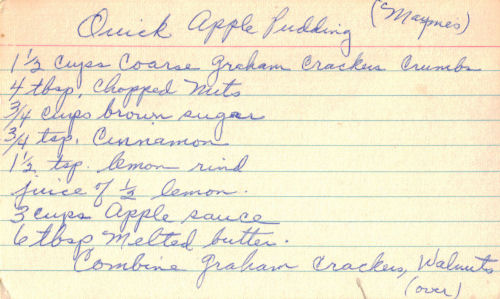 Quick Apple Pudding (Mayme's)
1 1/2 cups Coarse Graham Crackers Crumbs
4 tbsp. Chopped Nuts
3/4 cups brown sugar
3/4 tsp. Cinnamon
1 1/2 tsp. lemon rind
juice of 1/2 lemon.
3 cups Apple sauce
6 tbsp Melted butter.
Combine Graham Crackers, Walnuts
(over)